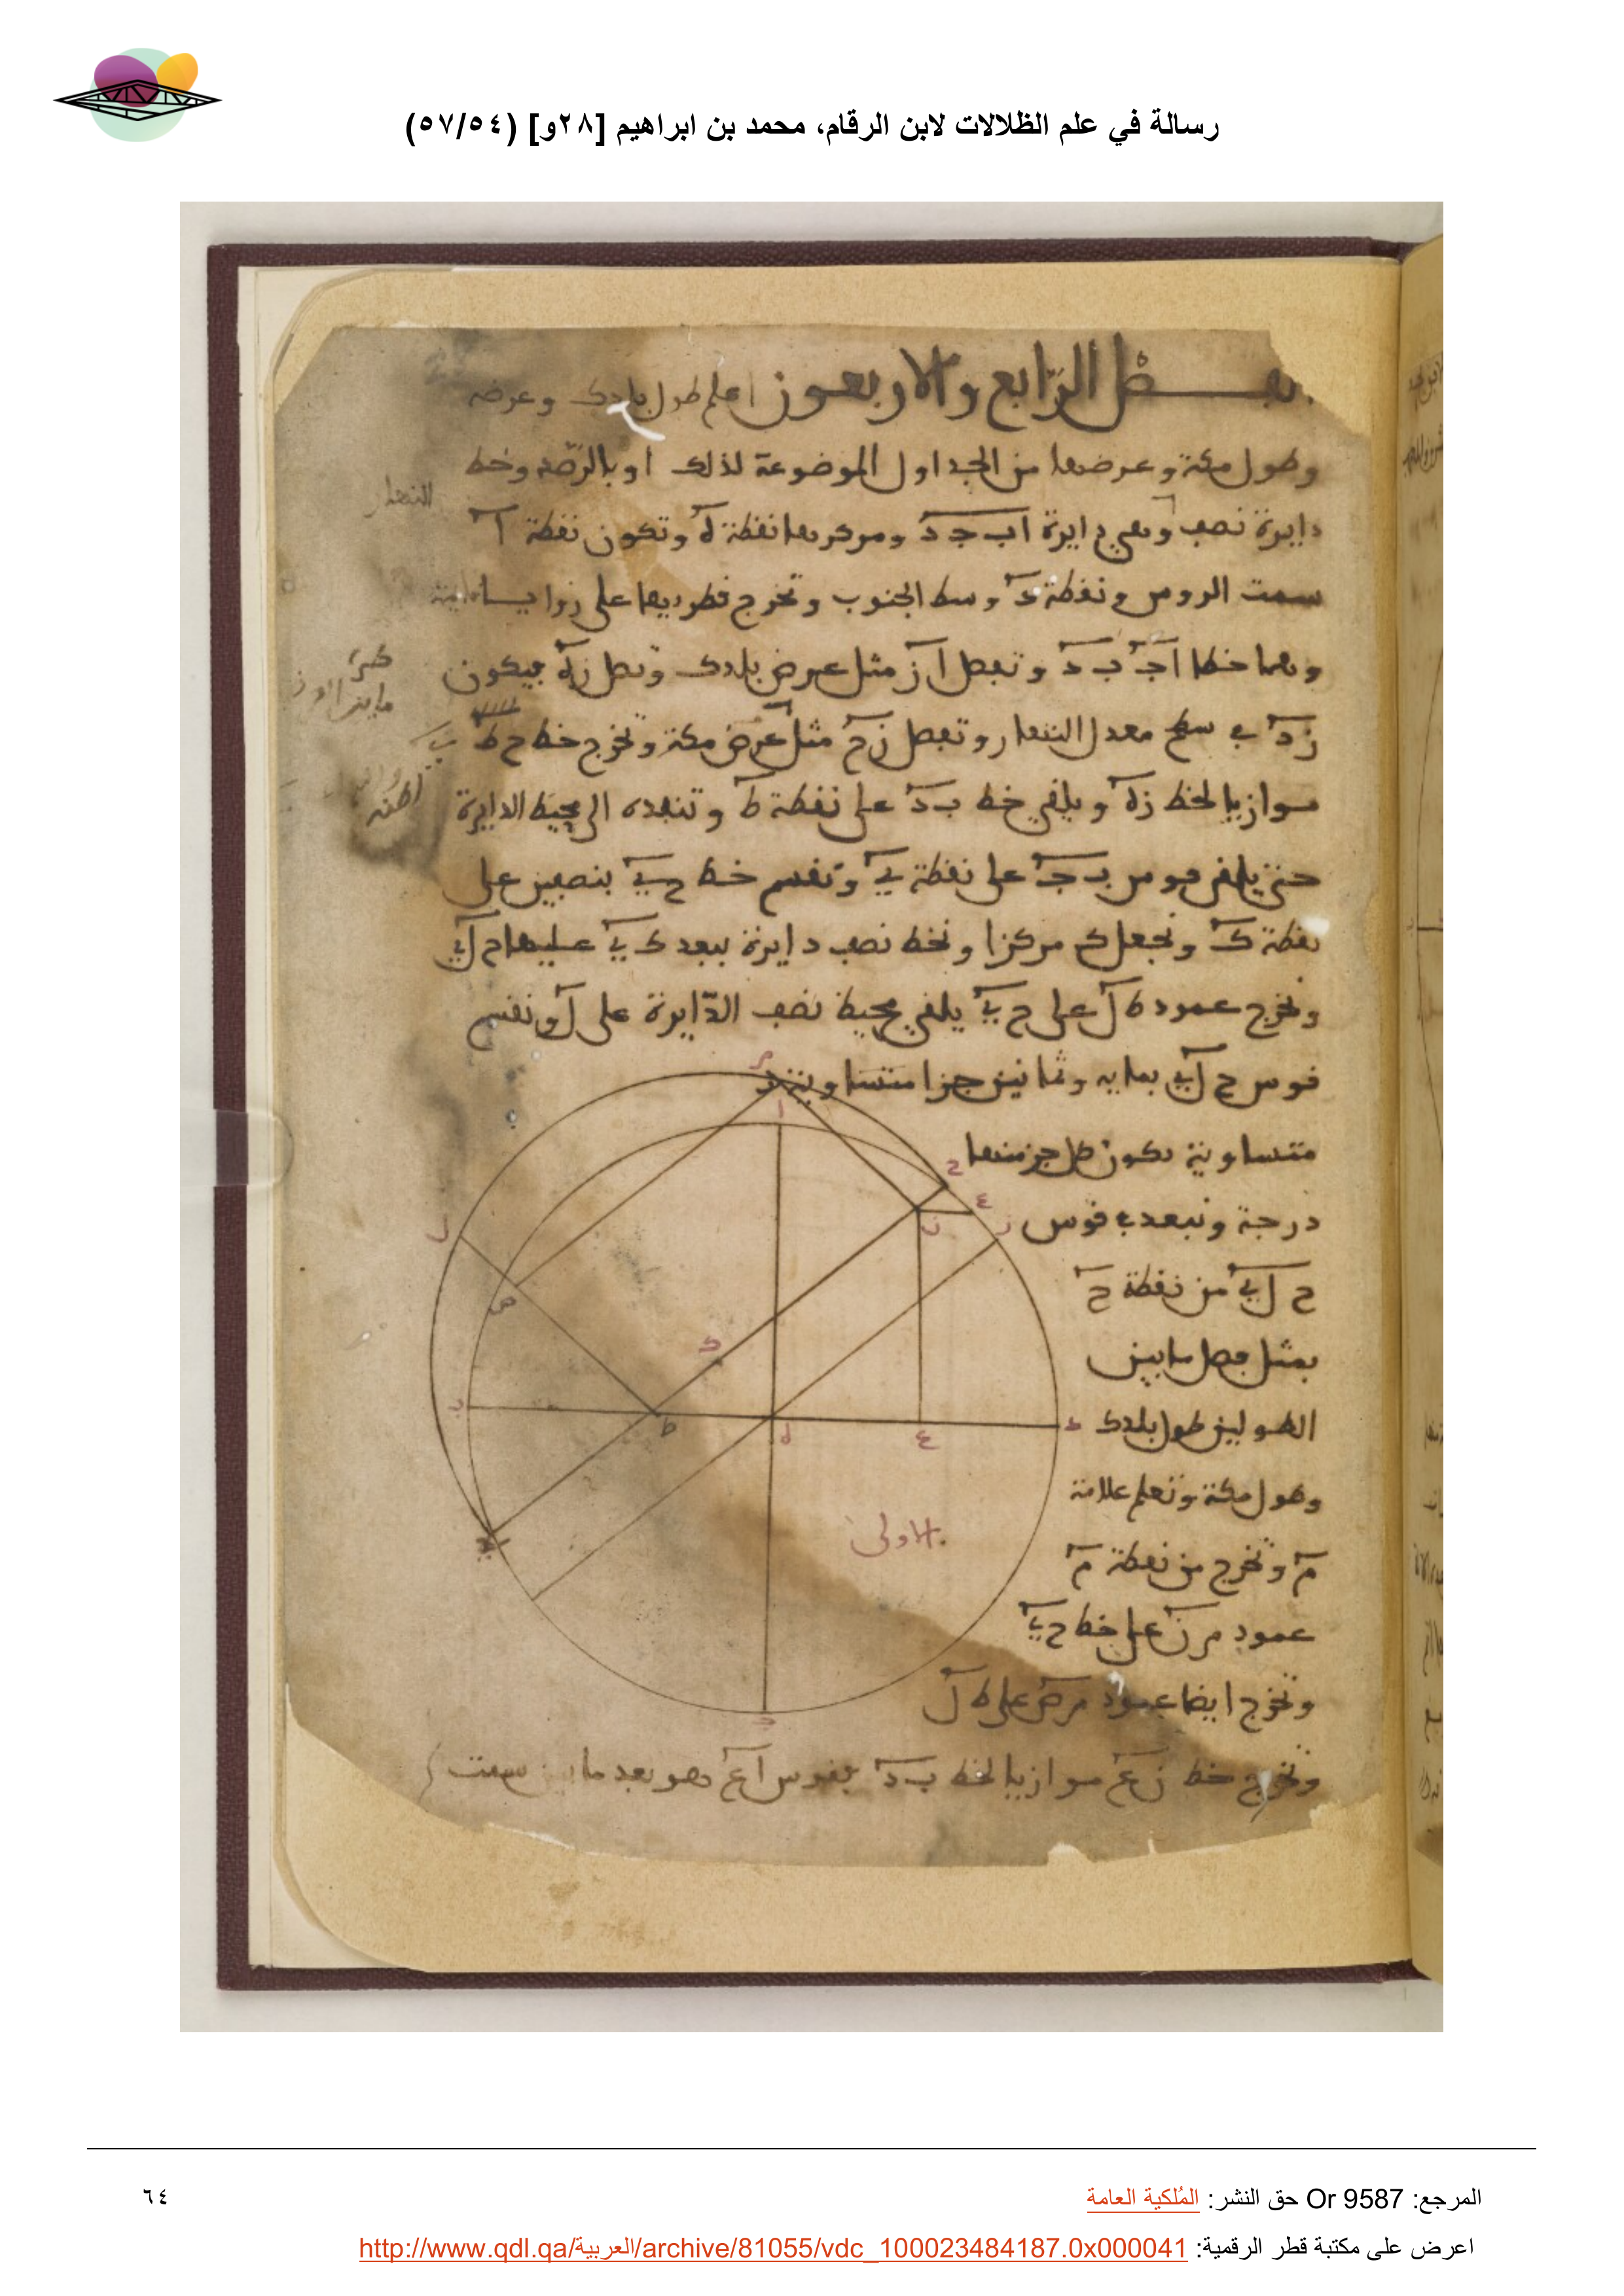 رسالة في علم الظلالات لابن الرقام، محمد بن ابراهيم [٢٨و] (٥٧/٥٤)
الرابع والاربعون اعلم طول بلدك وعرضه
وطول مكة وعرضها من الجداول الموضوعة لذلك او بالرصد وخط
النهار
دايرة نصف وهي دايرة اب ج د ومركزها نقطة ه وتكون نقطة ا
سمت الروس ونقطة د وسط الجنوب وتخرج قطريها على زوايا
وهما خطا ا ج ب د وتفصل ا ز مثل عرض بلدك وتصل ز ه فيكون
ز ه في سطح معدل النهار وتفصل ز ح مثل عرض مكة وتخرج خط ح ط
موازيا لخط ز ه ويلقى خط ب د على نقطة ط وتنفذه الى محيط الدايرة
حتى يلقى قوس ب ج على نقطة ي وتقسم خط ح ي بنصفين على
نقطة ك ونجعل ك مركزا ونخط نصف دايرة ببعد ك ي عليها ح ل ي
ونخرج عمود ط ل على ح ي يلقى محيط نصف الدايرة على ل ونقسم
قوس ح ل ي بمايه وثمانين جزا متساوية
متساوية تكون كل جز منها
درجة ونبعد في قوس
ح ل ي من نقطة ح
بمثل فضل ما بين
الطولين طول بلدك
وطول مكة ونعلم علامة
م ونخرج من نقطة م
عمود م ن على خط ح ي
ونخرج ايضا عمود م ص على ط ل
ونخرج خط ن ع موازيا لخط ب د فقوس ا ع هو بعد ما بين سمت
الاولى
المرجع: Or 9587 حق النشر: المُلكية العامة
٦٤
اعرض على مكتبة قطر الرقمية: http://www.qdl.qa/العربية/archive/81055/vdc_100023484187.0x000041